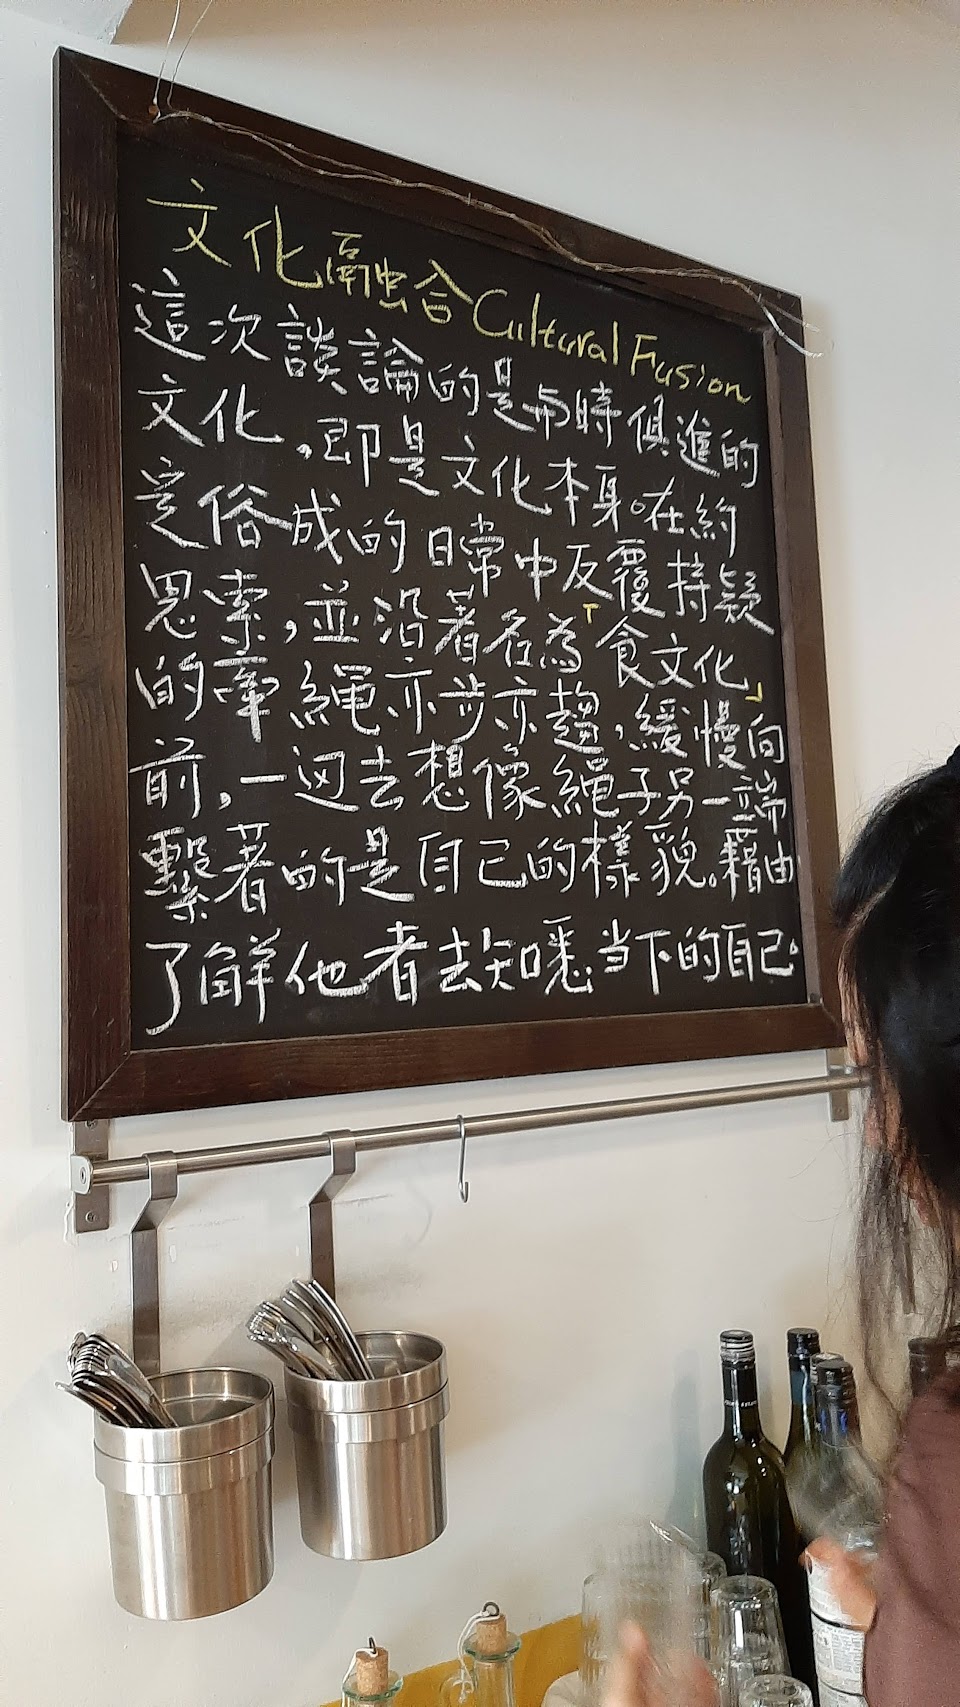 文化融合 Cultural Fusion
這次談論的是与時俱進的
文化，即是文化本身。在約
定俗成的日常中反覆持疑
思索，並沿著名為「食文化」
的牽繩亦步亦趨，緩慢向
前，一迥去想像繩子另一端
繫著的是自己的樣貌。藉由
了解他者去知嘿当下的自己。